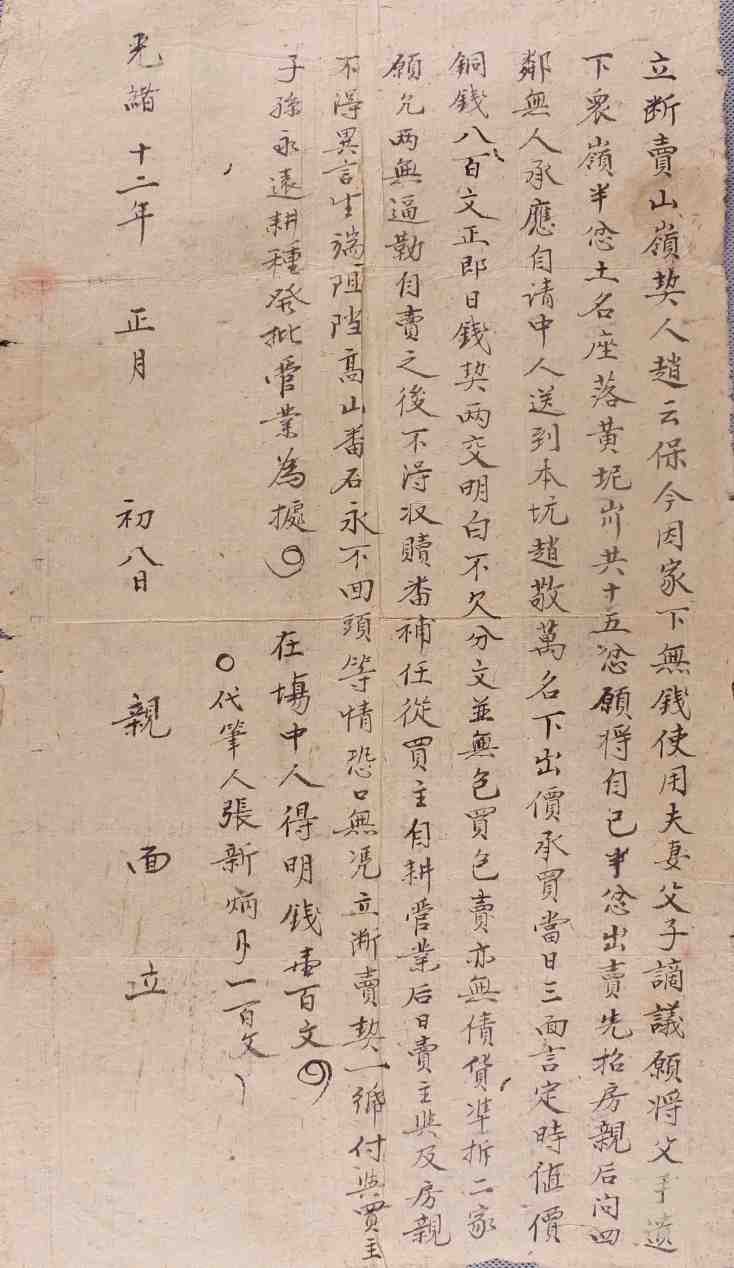 立断賣山嶺契人趙云保今因家下無錢使用夫妻父子謫議願將父手遺
下衆嶺半忿土名座落黃坭岃共十五忿願将自己半忿出賣先招房親后问四
鄰無人承應自请中人送到本坑趙敬萬名下出價承買當日三面言定時值價
銅錢八百文正即日錢契两交明白不欠分文並無包買包賣亦無債貨準折二家
願允两無逼勒自賣之後不淂収贖畨補任從買主自耕管業后日賣主與及房親
不得異言生端阻挡高山畨石永不回頭等情恐口無凴立断賣契一帋付與買主
子孫永遠耕種發批管業為據
在塲中人得明錢壹百文
代筆人張新炳 一百文
光緒十二年 正月 初八日 親 面 立